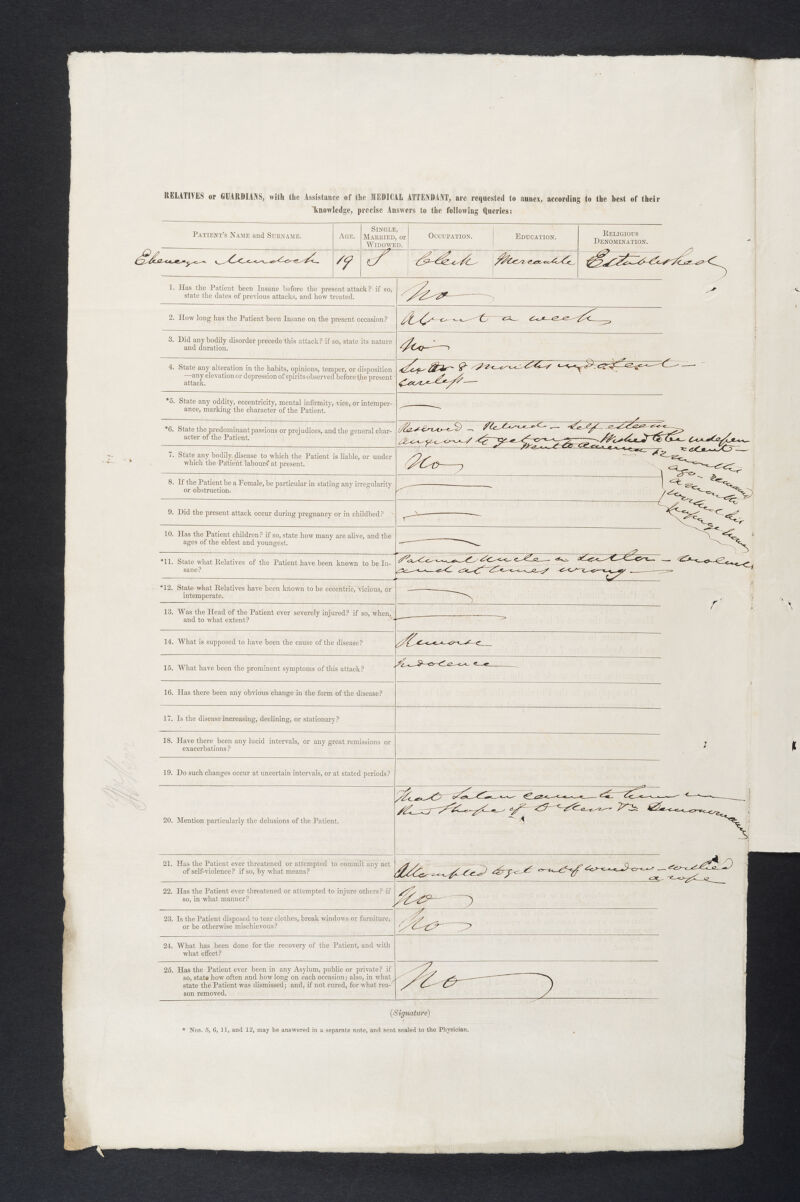 RELATIVES or GUARDIANS, with the Assistance of the MEDICAL ATTENDANT, are requested to annex, according to the best of their
knowledge, precise Answers to the following Queries:
PATIENT'S NAME and SURNAME. AGE. SINGLE, MARRIED, or WIDOWED. OCCUPATION. EDUCATION. RELIGIOUS DENOMINATION.
Ebenezer Murdoch 19 S Clerk Mercantile Established
1. Has the Patient been Insane before the present attack? if so,
state the dates of previous attacks, and how treated.
No
2. How long has the Patient been Insane on the present occasion?
About a week
3. Did any bodily disorder precede this attack? if so, state its nature
and duration.
No
4. State any alteration in the habits, opinions, temper, or disposition
—any elevation or depression of spirits observed before the present
attack.
Six or 8 months indolent —
careless —
*5. State any oddity, eccentricity, mental infirmity, vice, or intemper-
ance, marking the character of the Patient.
—
*6. State the predominant passions or prejudices, and the general char-
acter of the Patient.
Reserved — Retired — Self esteem
anxious to get on — Wished to be indepen
dent —
Went to America 12 months
ago — remained
a month
worked his
passage home
7. State any bodily disease to which the Patient is liable, or under
which the Patient labours at present.
No
8. If the Patient be a Female, be particular in stating any irregularity
or obstruction.
—
9. Did the present attack occur during pregnancy or in childbed?
—
10. Has the Patient children? if so, state how many are alive, and the
ages of the eldest and youngest.
—
*11. State what Relatives of the Patient have been known to be In-
sane?
Paternal Uncle a — violent
and at times wrong —
*12. State what Relatives have been known to be eccentric, vicious, or
intemperate.
—
13. Was the Head of the Patient ever severely injured? if so, when,
and to what extent?
—
14. What is supposed to have been the cause of the disease?
Remorse
15. What have been the prominent symptoms of this attack?
Indolence
16. Has there been any obvious change in the form of the disease?
17. Is the disease increasing, declining, or stationary?
18. Have there been any lucid intervals, or any great remissions or
exacerbations?
19. Do such changes occur at uncertain intervals, or at stated periods?
20. Mention particularly the delusions of the Patient.
That Satan came to him in
the shape of Dr Kerr
21. Has the Patient ever threatened or attempted to commit any act
of self-violence? if so, by what means?
Attempted to get out of window — wished
a rope
22. Has the Patient ever threatened or attempted to injure others? if
so, in what manner?
No
23. Is the Patient disposed to tear clothes, break windows or furniture,
or be otherwise mischievous?
No
24. What has been done for the recovery of the Patient, and with
what effect?
25. Has the Patient ever been in any Asylum, public or private? if
so, state how often and how long on each occasion; also, in what
state the Patient was dismissed; and, if not cured, for what rea-
son removed.
No
(Signature)
* Nos. 5, 6, 11, and 12, may be answered in a separate note, and sent sealed to the Physician.